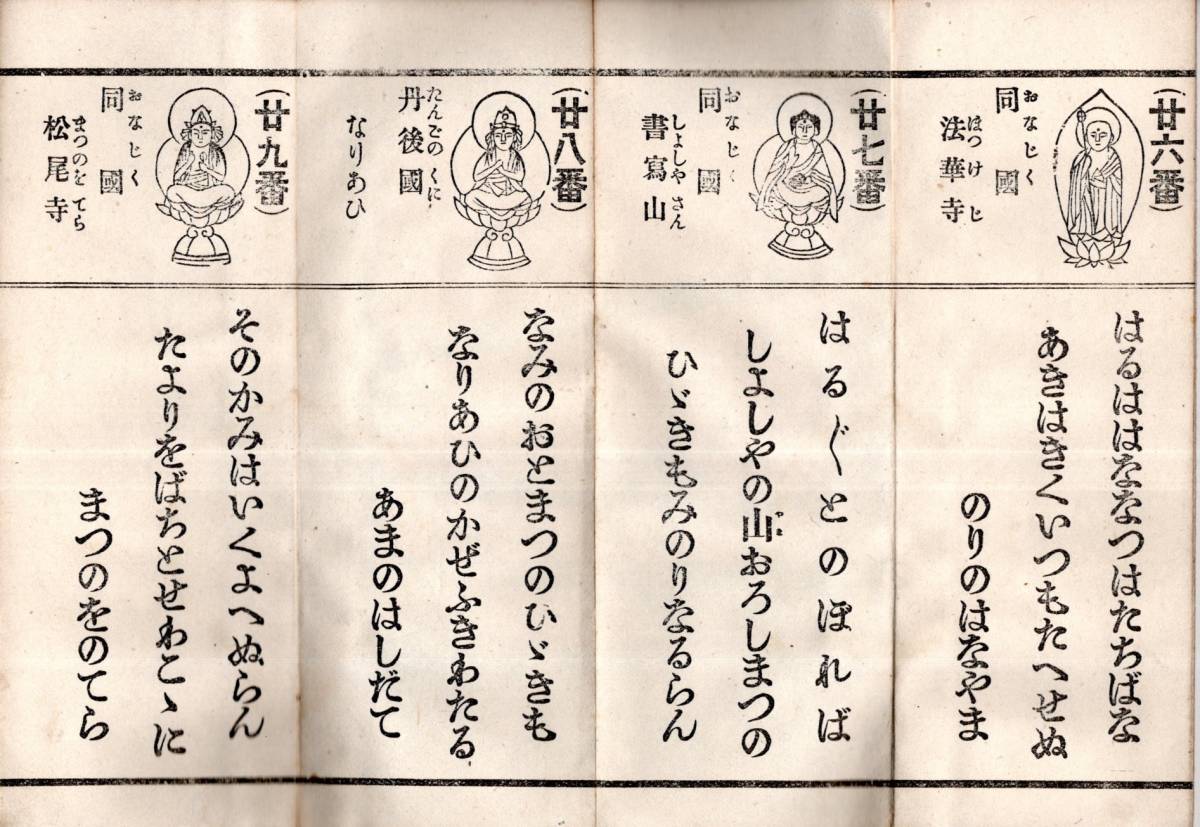 (廿六番)
おなじく
同國
ほつけじ
法華寺
はるははななつはたちばな
あきはきくいつもたへせぬ
のりのはなやま
(廿七番)
おなじく
同國
しよしやさん
書寫山
はる〴〵とのぼれば
しよしやの山おろしまつの
ひゞきもみのりなるらん
(廿八番)
たんごのくに
丹後國
なりあひ
なみのおとまつのひゞきも
なりあひのかぜふきわたる
あまのはしだて
(廿九番)
おなじく
同國
まつのをてら
松尾寺
そのかみはいくよへぬらん
たよりをばちとせわこゝに
まつのをのてら